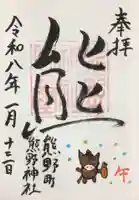 奉拝
熊
熊野町
熊野神社
令和八年一月十二日
午